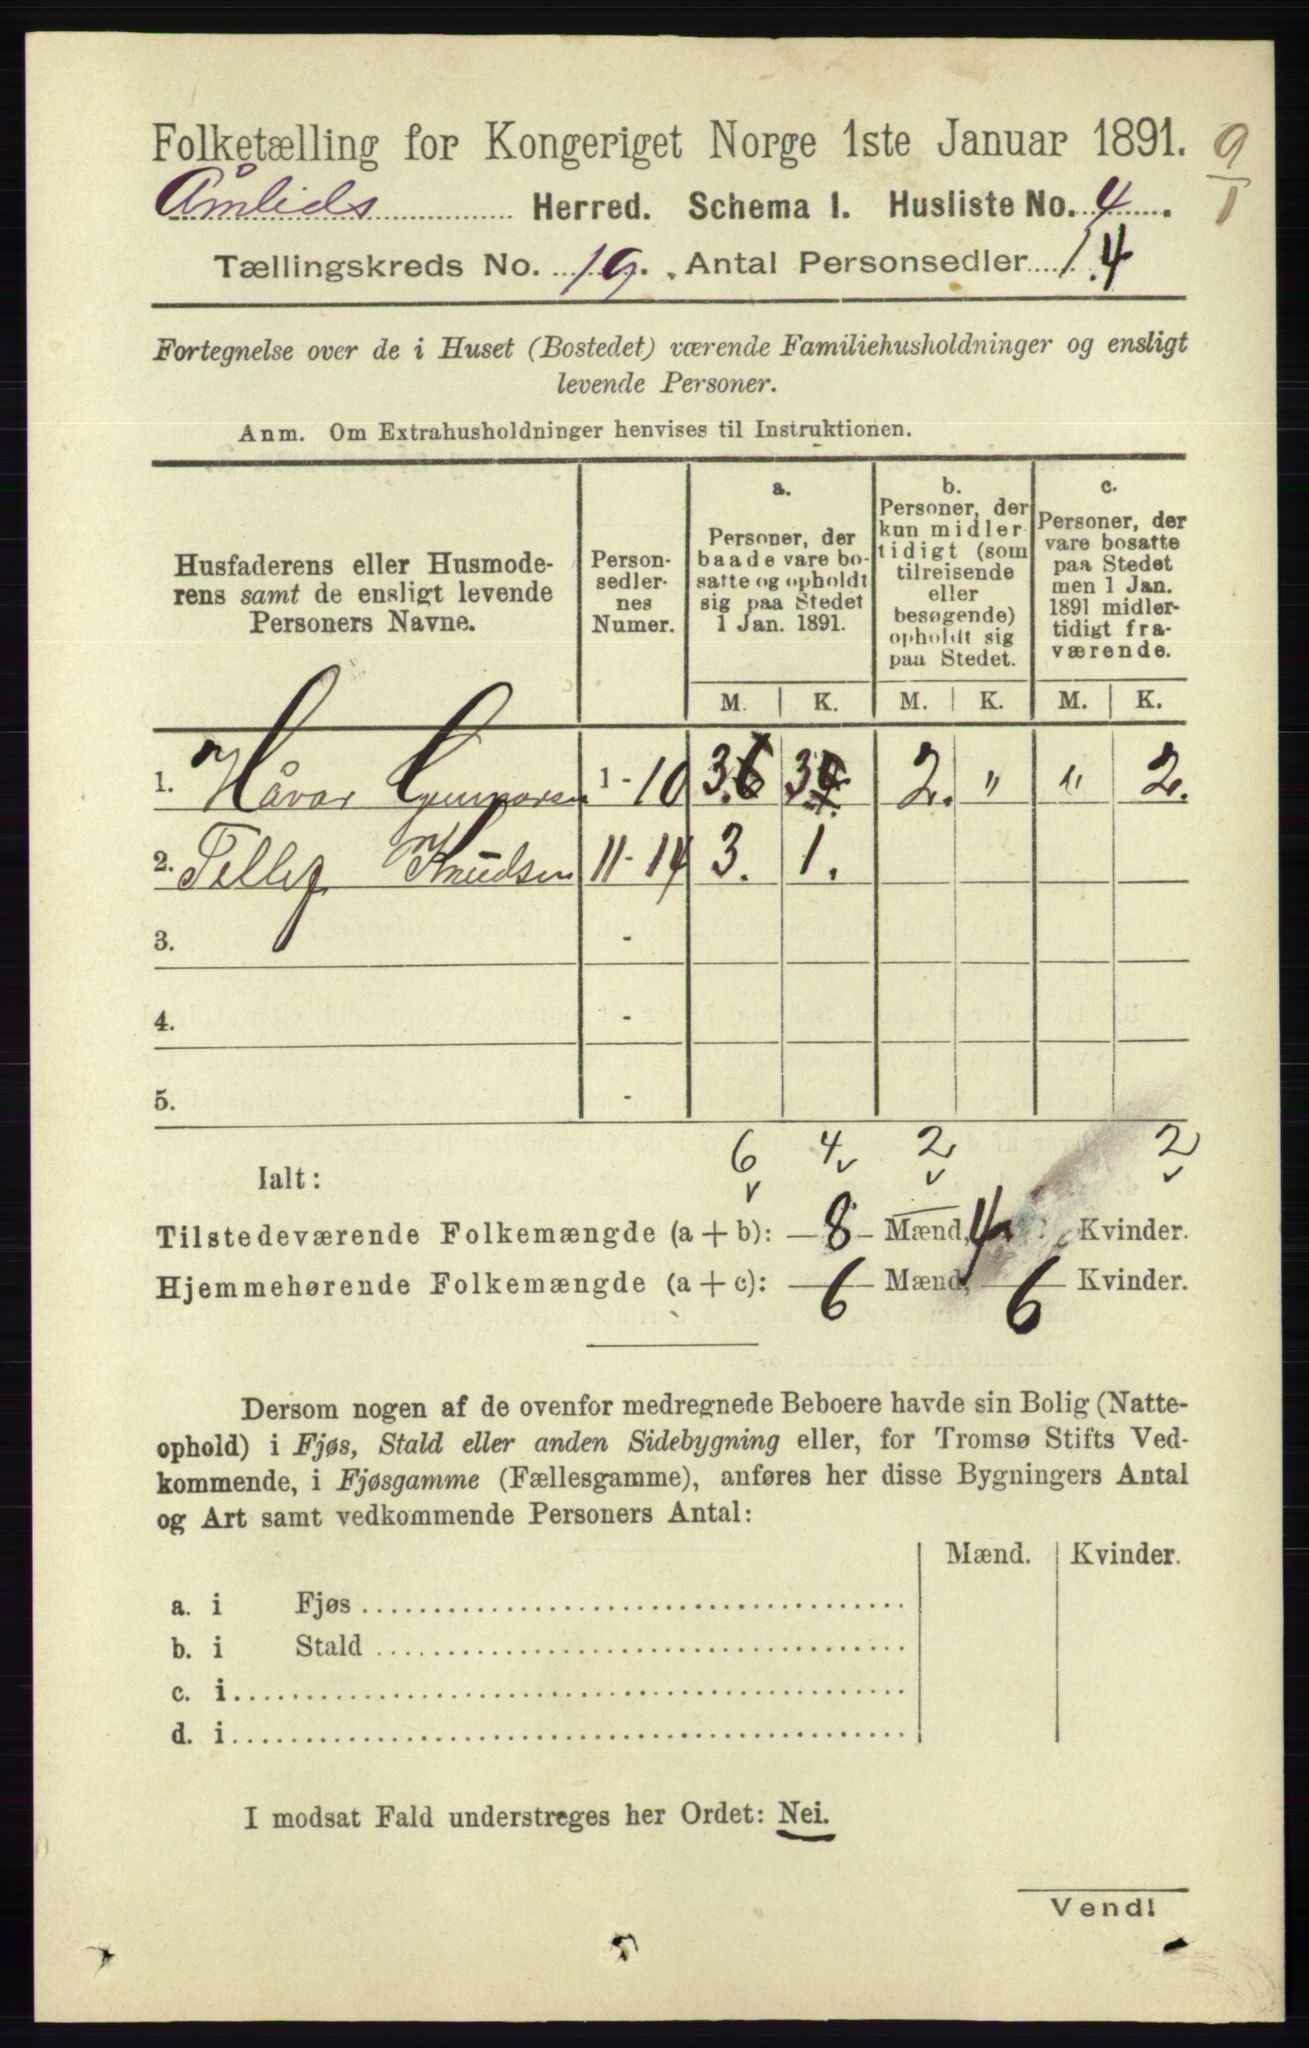 Folketælling for Kongeriget Norge 1ste Januar 1891.
9
1
Åmlids Herred. Schema 1. Husliste No. 4
Tællingskreds No. 19. Antal Personsedler 14
Fortegnelse over de i Huset (Bostedet) værende Familiehusholdninger og ensligt
levende Personer.
Anm. Om Extrahusholdninger henvises til Instruktionen.
Husfaderens eller Husmode-
rens samt de ensligt levende
Personers Navne.
Person-
sedler-
nes
Numer.
a.
Personer, der
baade vare bo-
satte og opholdt
sig paa Stedet
1 Jan. 1891.
b.
Personer, der
kun midler-
tidigt (som
tilreisende
eller
besøgende)
opholdt sig
paa Stedet.
c.
Personer, der
vare bosatte
paa Stedet
men 1 Jan.
1891 midler-
tidigt fra-
værende.
M. K. M. K. M. K.
1. Håvar Gunnarsen 1-10 3. 3 2. " " 2.
2. Tellef Knudsen 11-14 3. 1.
3. -
4. -
5. -
6 4 2 2
Ialt:
Tilstedeværende Folkemængde (a + b): 8 Mænd, 4 Kvinder.
Hjemmehørende Folkemængde (a + c): 6 Mænd, 6 Kvinder.
Dersom nogen af de ovenfor medregnede Beboere havde sin Bolig (Natte-
ophold) i Fjøs, Stald eller anden Sidebygning eller, for Tromsø Stifts Ved-
kommende, i Fjøsgamme (Fællesgamme), anføres her disse Bygningers Antal
og Art samt vedkommende Personers Antal:
Mænd. Kvinder.
a. i Fjøs
b. i Stald
c. i
d. i
I modsat Fald understreges her Ordet: Nei.
Vend!